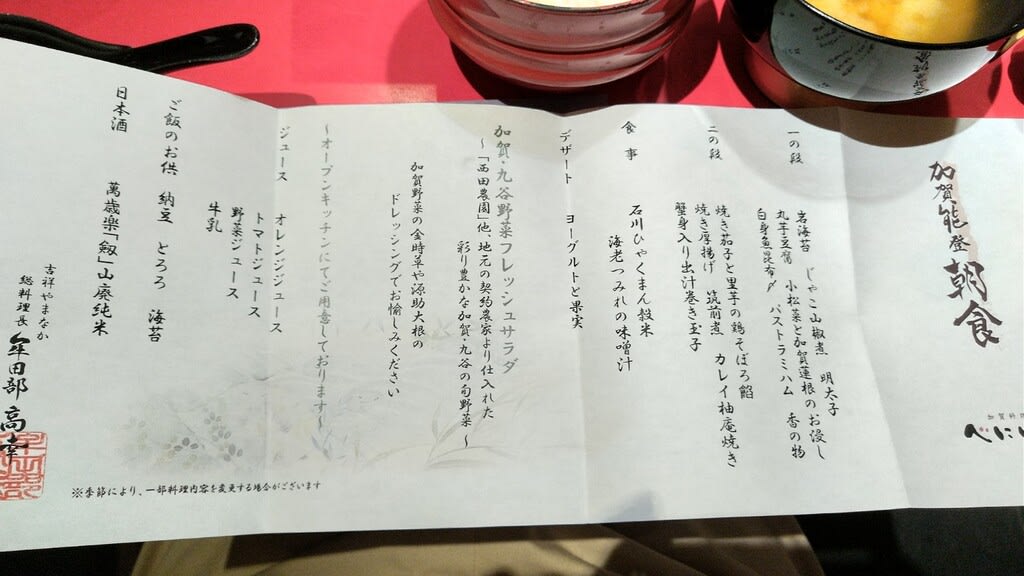 加賀能登朝食
加賀料理
べにい
一の段
岩海苔 じゃこ山椒煮 明太子
丸芋豆腐 小松菜と加賀蓮根のお浸し
白身魚昆布〆 パストラミハム 香の物
二の段
焼き茄子と里芋の鶏そぼろ餡
焼き厚揚げ 筑前煮 カレイ柚庵焼き
蟹身入り出汁巻き玉子
食事
石川ひゃくまん穀米
海老つみれの味噌汁
デザート ヨーグルトと果実
加賀・九谷野菜フレッシュサラダ
～「西田農園」他、地元の契約農家より仕入れた
彩り豊かな加賀・九谷の旬野菜～
加賀野菜の金時草や源助大根の
ドレッシングでお愉しみください
～オープンキッチンにてご用意しております～
ジュース オレンジジュース
トマトジュース
野菜ジュース
牛乳
ご飯のお供 納豆 とろろ 海苔
日本酒 萬歳楽「剱」山廃純米
吉祥やまなか
総料理長 牟田部 高幸
※季節により、一部料理内容を変更する場合がございます